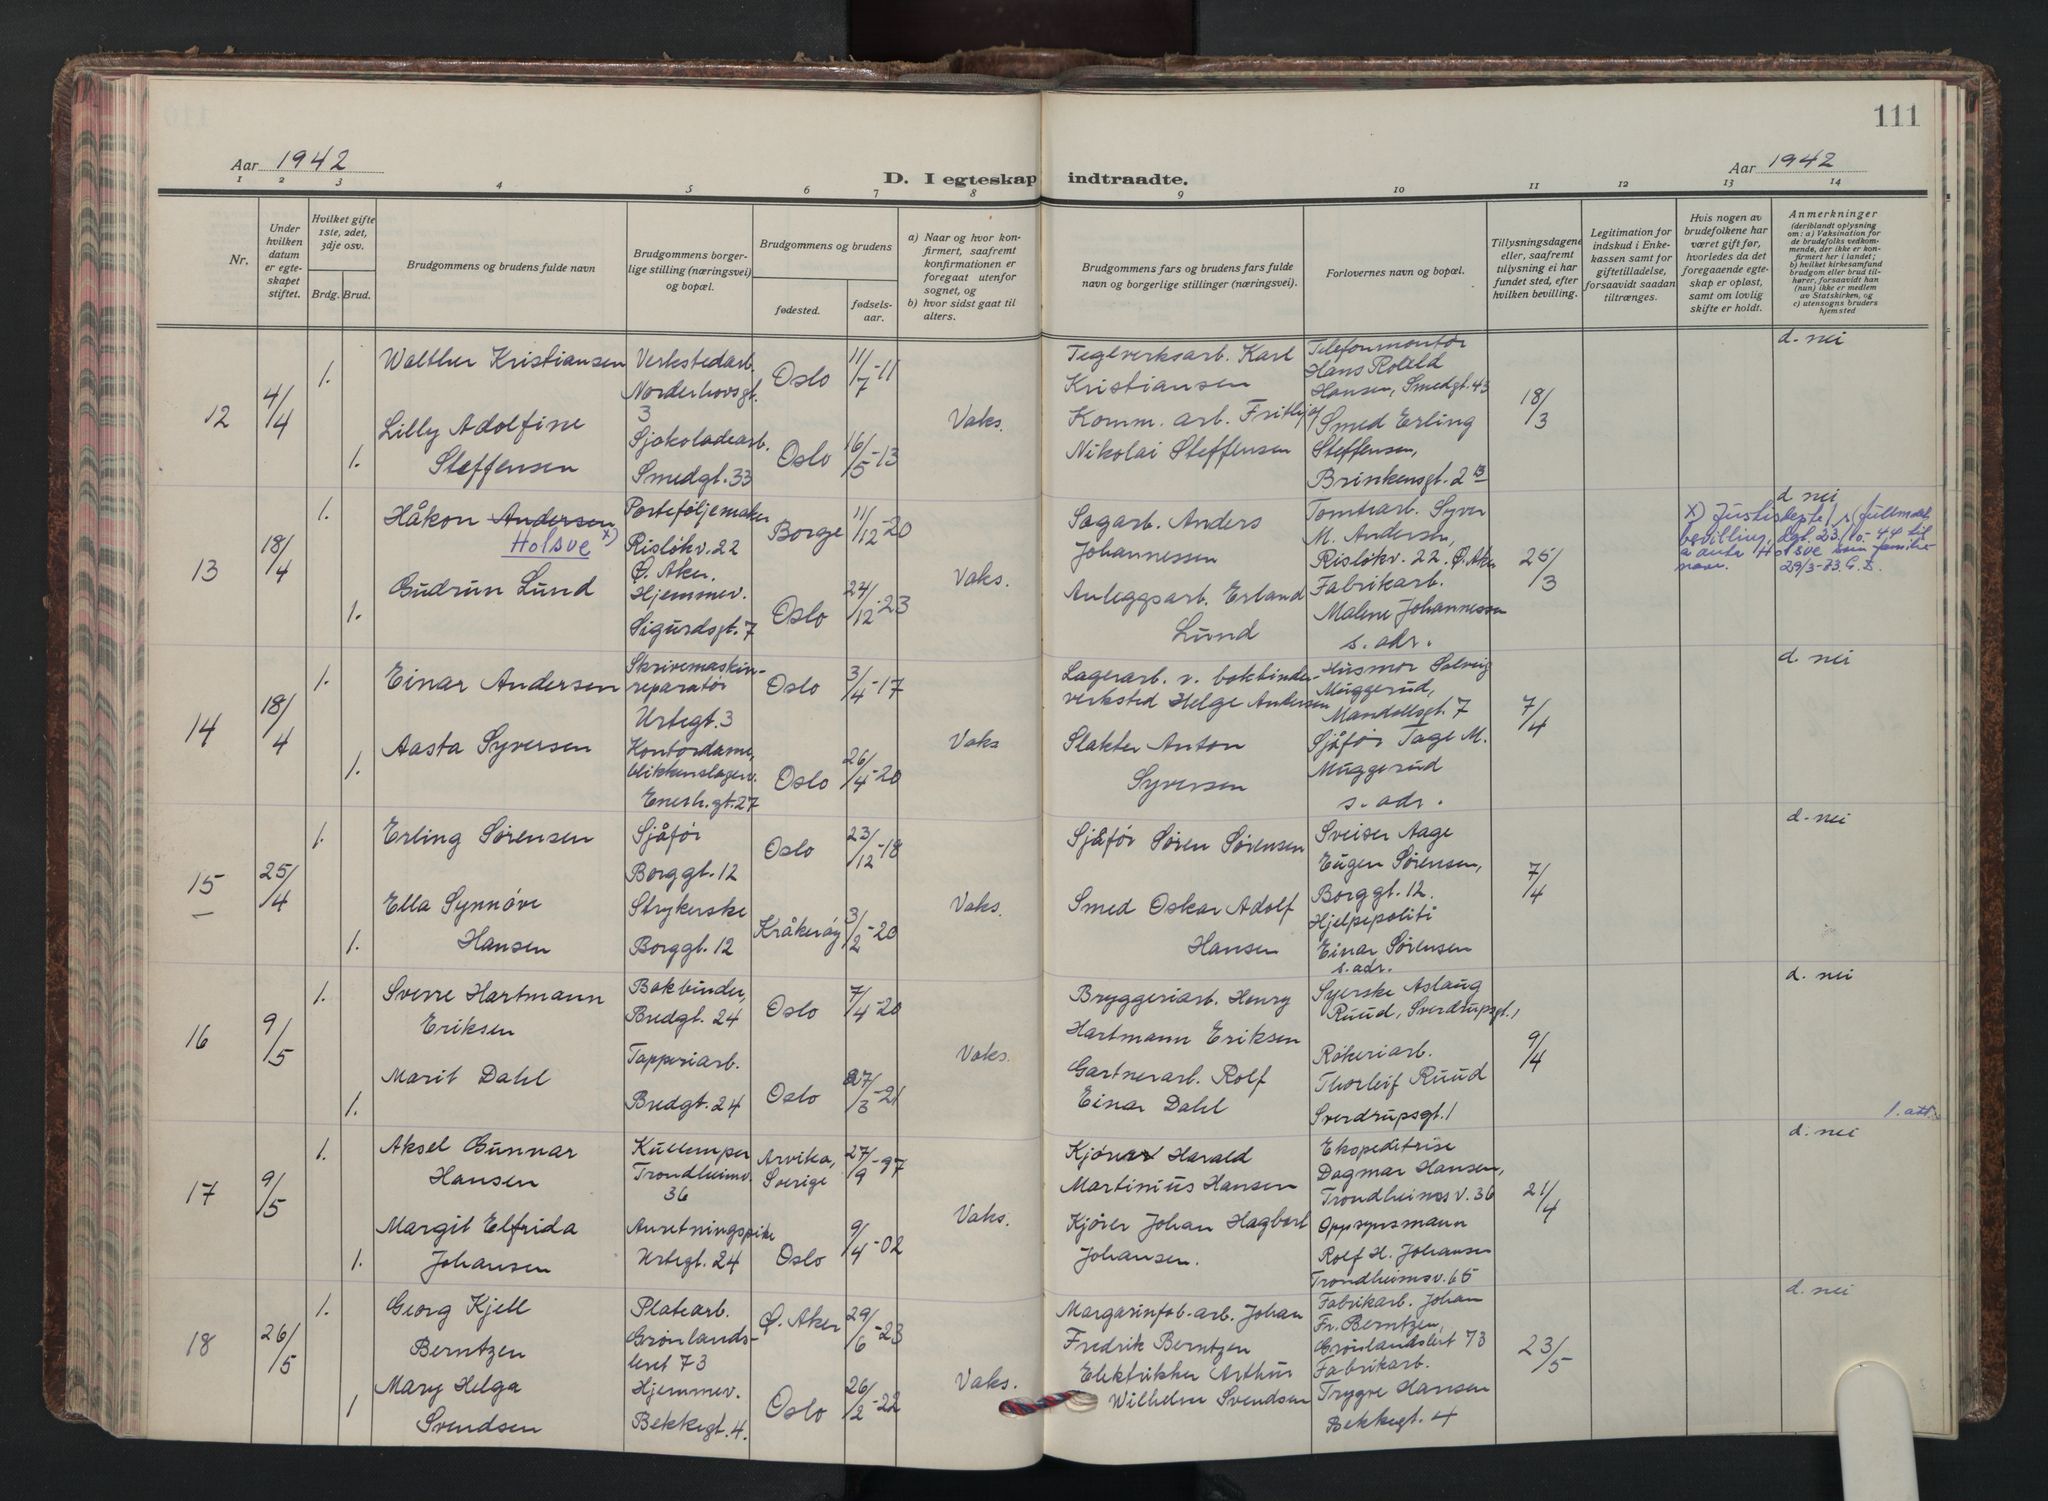 111
Aar 1942
D. I egteskap indtraadte.
Aar 1942
1 2 3 4 5 6 7 8 9 10 11 12 13 14
Nr.
Under hvilken datum er egteskapet stiftet.
Hvilket gifte 1ste, 2det, 3dje osv.
Brdg. Brud.
Brudgommens og brudens fulde navn
Brudgommens borgerlige stilling (næringsvei) og bopæl.
Brudgommens og brudens
fødested.
fødselsaar.
a) Naar og hvor konfirmert, saafremt konfirmationen er foregaat utenfor sognet, og
b) hvor sidst gaat til alters.
Brudgommens fars og brudens fars fulde navn og borgerlige stillinger (næringsvei).
Forlovernes navn og bopæl.
Tillysningsdagene eller, saafremt tillysning ei har fundet sted, efter hvilken bevilling.
Legitimation for indskud i Enkekassen samt for giftetilladelse, forsaavidt saadan tiltrænges.
Hvis nogen av brudefolkene har været gift før, hvorledes da det foregaaende egteskap er opløst, samt om lovlig skifte er holdt.
Anmerkninger
(deriblandt oplysning om: a) Vaksination for de brudefolks vedkommende, der ikke er konfirmert her i landet; b) hvilket kirkesamfund brudgom eller brud tilhører, forsaavidt han (hun) ikke er medlem av Statskirken, og c) utensogns bruders hjemsted
12
4/4
1.
Walther Kristiansen
Verkstedarb.
Norderhovsgt.
3
Oslo
11/7-11
Teglverksarb. Karl
Kristiansen
Telefonmontør
Hans Roald
Hansen, Smedgt. 43
18/3
d. nei
1.
Lilly Adolfine
Steffensen
Sjokoladearb.
Smedgt. 33
Oslo
16/5-13
Vaks.
Komm. arb. Frithjof
Nikolai Steffensen
Smed Erling
Steffensen,
Brinkensgt. 2 B
13
18/4
1.
Håkon Andersen
Holsve x)
Porteføljemaker
Risløkv. 22
Ø. Aker.
Borge
11/12-20
Sagarb. Anders
Johannessen
Tomtearb. Syver
M. Andersen,
Risløkv. 22. Ø. Aker
25/3
d. nei
x) Justisdepte/s fullmakt
bevilling, dgt. 23/10-44 til
å anta Holsve som familie-
navn. 29/3-73. G.D.
1.
Gudrun Lund
Hjemmev.
Sigurdsgt. 7
Oslo
24/12-23
Vaks.
Anleggsarb. Erland
Lund
Fabrikarb.
Malene Johannessen
s. adr.
14
18/4
1.
Einar Andersen
Skrivemaskin-
reparatør
Urtegt. 3
Oslo
3/4-17
Lagerarb. v. bokbinder-
verksted Helge Andersen
Husmor Solveig
Muggerud,
Mandallsgt. 7
7/4
d. nei
1.
Aasta Syversen
Kontordame,
blikkenslagerv.
Enesh. gt. 27
Oslo
26/4-20
Vaks
Slakter Anton
Syversen
Sjåfør Tage M.
Muggerud
s. adr.
15
25/4
1.
Erling Sørensen
Sjåfør
Borggt. 12
Oslo
23/12-18
Sjåfør Søren Sørensen
Sveiser Aage
Eugen Sørensen,
Borggt. 12.
7/4
d. nei
1.
Ella Synnøve
Hansen
Strykerske
Borggt. 12
Kråkerøy
3/2-20
Vaks.
Smed Oskar Adolf
Hansen
Hjelpepoliti
Einar Sørensen
s. adr.
16
9/5
1.
Sverre Hartmann
Eriksen
Bokbinder,
Bredgt. 24
Oslo
7/4-20
Bryggeriarb. Henry
Hartmann Eriksen
Syerske Aslaug
Ruud, Sverdrupsgt. 1
9/4
d. nei
1.
Marit Dahl
Tapperiarb.
Bredgt. 24
Oslo
27/3-21
Vaks.
Gartnerarb. Rolf
Einar Dahl
Røkeriarb.
Thorleif Ruud
Sverdrupsgt. 1
1. att.
17
9/5
1.
Aksel Gunnar
Hansen
Kullemper
Trondheimsv.
36
Arvika,
Sverige
27/9-97
Kjører Harald
Martinius Hansen
Ekspeditrise
Dagmar Hansen,
Trondheimsv. 36
21/4
d. nei
1.
Margit Elfrida
Johansen
Anretningspike
Urtegt. 24
Oslo
9/4-02
Vaks.
Kjører Johan Hagbart
Johansen.
Oppsynsmann
Rolf H. Johansen
Trondheimsv. 65
18
26/5
1.
Georg Kjell
Berntzen
Platearb.
Grønlands-
leret 73
Ø. Aker
29/6-23
Margarinfab. arb. Johan
Fredrik Berntzen
Fabrikarb. Johan
Fr. Berntzen,
Grønlandsleret 73
23/5
d. nei
1
Mary Helga
Svendsen
Hjemmev.
Bekkegt. 4.
Oslo
26/2-22
Vaks.
Elektriker Arthur
Wilhelm Svendsen
Fabrikarb.
Trygve Hansen
Bekkegt. 4